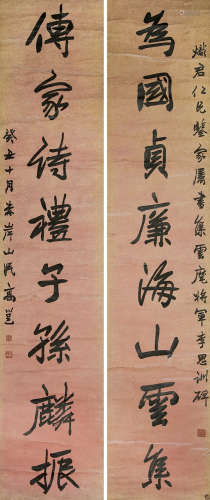 為國貞廉海山雲集
熾君仁兄鑒家屬書集雲麾將軍李思訓碑
傳家詩禮子孫麟振
癸丑十月赤岸山民高邕